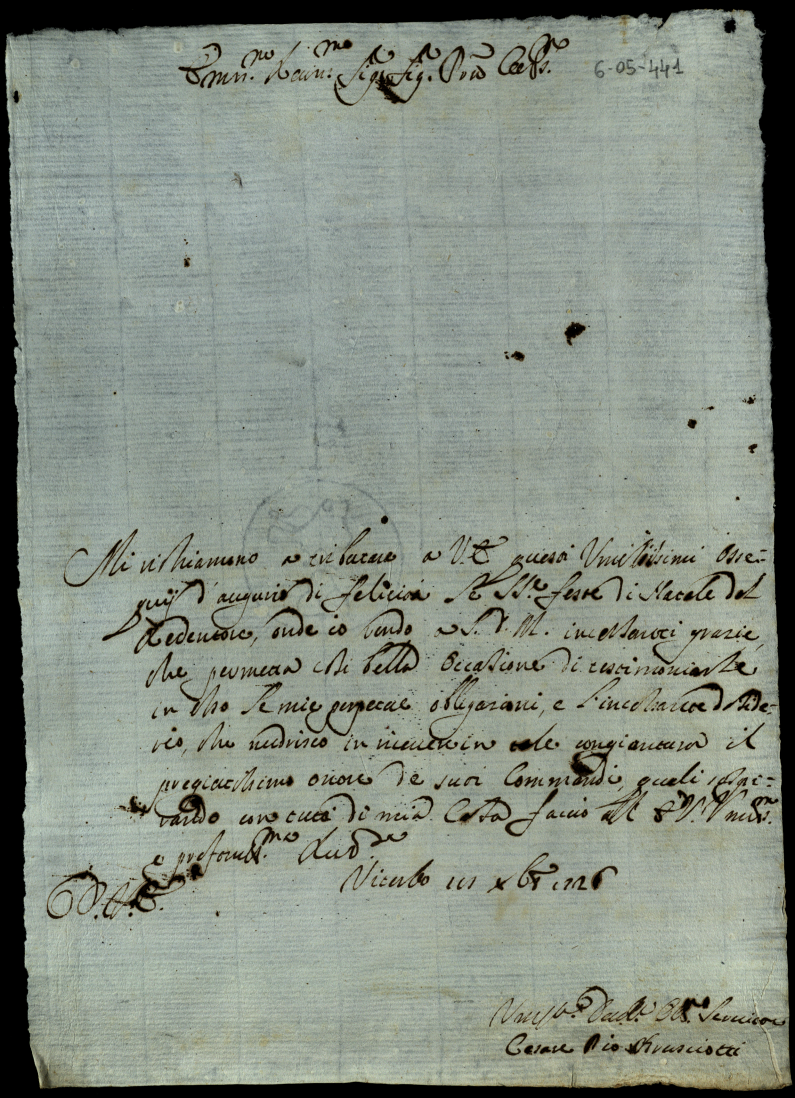 Emin.mo Rev.mo Sig.r Sig.r P'rõn Col.mo
6-05-441
Mi richiamono a tributare a V.E. questi Umilissimi osse=
quij d'augurio di felicità le SS.e feste di Natale del
Redentore, onde io rendo a S.D.M. incessanti grazie,
che permetta così bella occasione di testimoniarle
in esso le mie perpetue obligazioni, e l'incessante deside=
rio, che nudrisco in ricevere in tale congiuntura il
pregiatissimo onore de suoi Commandi, quali
con tutta di mia Casa faccio all' E.V. Umilis.ma
e profondis.ma Riv.za
Viterbo xbre 1726
D. V. E.
Umil.mo Dev.mo Obl.mo Servitore
Cesare Pio Brusciotti